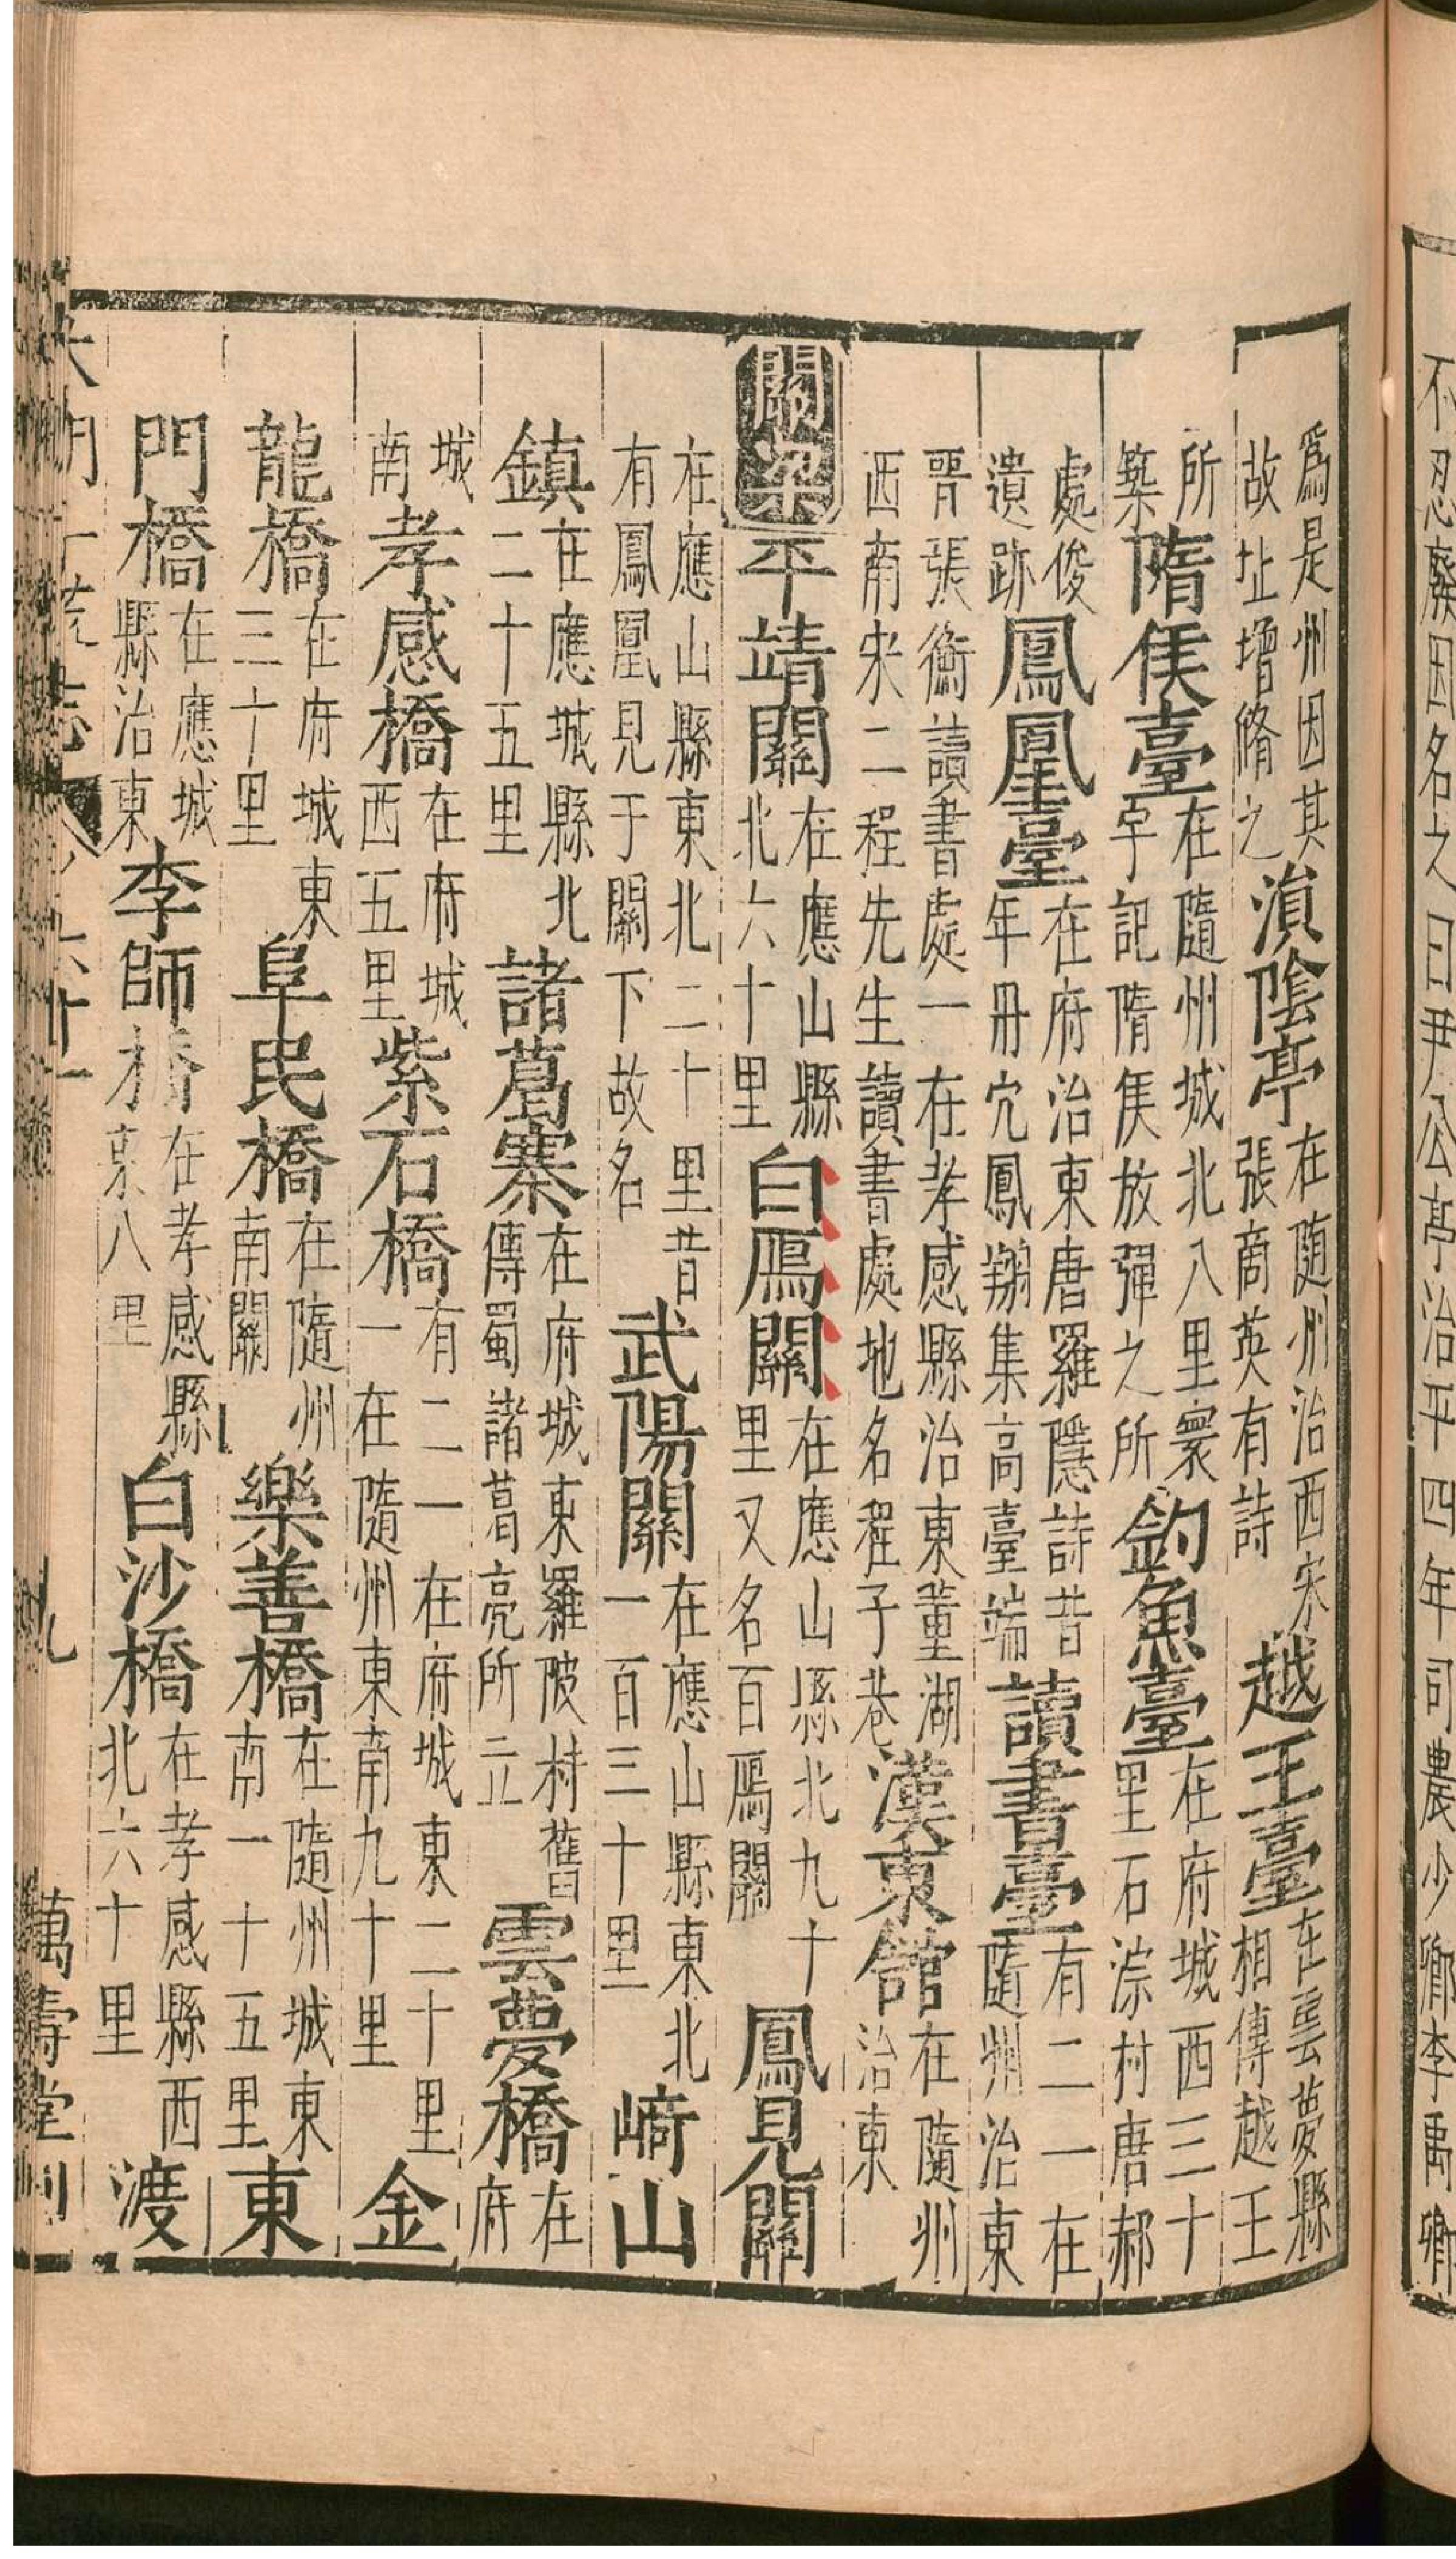 不忍廢因名之曰尹公亭治平四年司農少卿李禹卿
爲是州因其故址增脩之溳陰亭在随州治西宋張商英有詩越王臺在雲夢縣相傳越王
所築隋侯臺在隨州城北八里寰宇記隋侯放彈之所釣魚臺在府城西三十里石漴村唐郝
處俊遺跡鳳凰臺在府治東唐羅隱詩昔年丹穴鳳翔集高臺端讀書臺有二一在隨州治東
晋張衡讀書處一在孝感縣治東董湖西南宋二程先生讀書處地名程子巷漢東館在隨州治東
關梁平靖關在應山縣北六十里白鴈關在應山縣北九十里又名百鴈關鳳見關
在應山縣東北二十里昔有鳳凰見于關下故名武陽關在應山縣東北一百三十里﨑山
鎮在應城縣北二十五里諸葛寨在府城東羅陂村舊傳蜀諸葛亮所立雲夢橋在府
城南孝感橋在府城西五里紫石橋有二一在府城東二十里一在隨州東南九十里金
龍橋在府城東三十里阜民橋在隨州南關樂善橋在隨州城東南一十五里東
門橋在應城縣治東李師橋在孝感縣東八里白沙橋在孝感縣西北六十里渡
大明一統志 六十一 九 萬壽堂刊